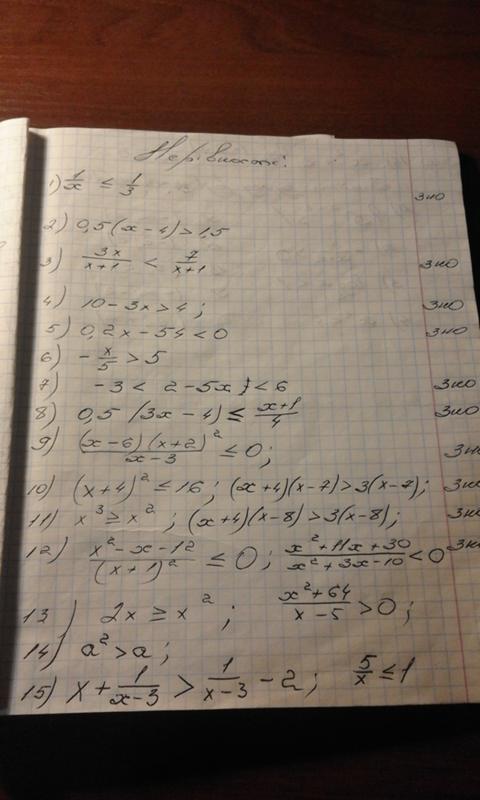 Нерівності:
1) 1/x ≤ 1/3 зно
2) 0,5(x-4)>1,5
3) 3x/(x+1) < 7/(x+1) зно
4) 10-3x>4; зно
5) 0,2x-54<0 зно
6) -x/5 > 5
7) -3 < 2-5x < 6 зно
8) 0,5 (3x-4) ≤ (x+1)/4 зно
9) (x-6)(x+2)²/(x-3) ≤ 0; зно
10) (x+4)² ≤ 16; (x+4)(x-7)>3(x-7); зно
11) x³ ≥ x²; (x+4)(x-8)>3(x-8); зно
12) (x²-x-12)/(x+1)² ≤ 0; (x²+11x+30)/(x²+3x-10) < 0 зно
13) 2x ≥ x²; (x²+64)/(x-5) > 0;
14) a²>a;
15) x + 1/(x-3) > 1/(x-3) - 2; 5/x ≤ 1